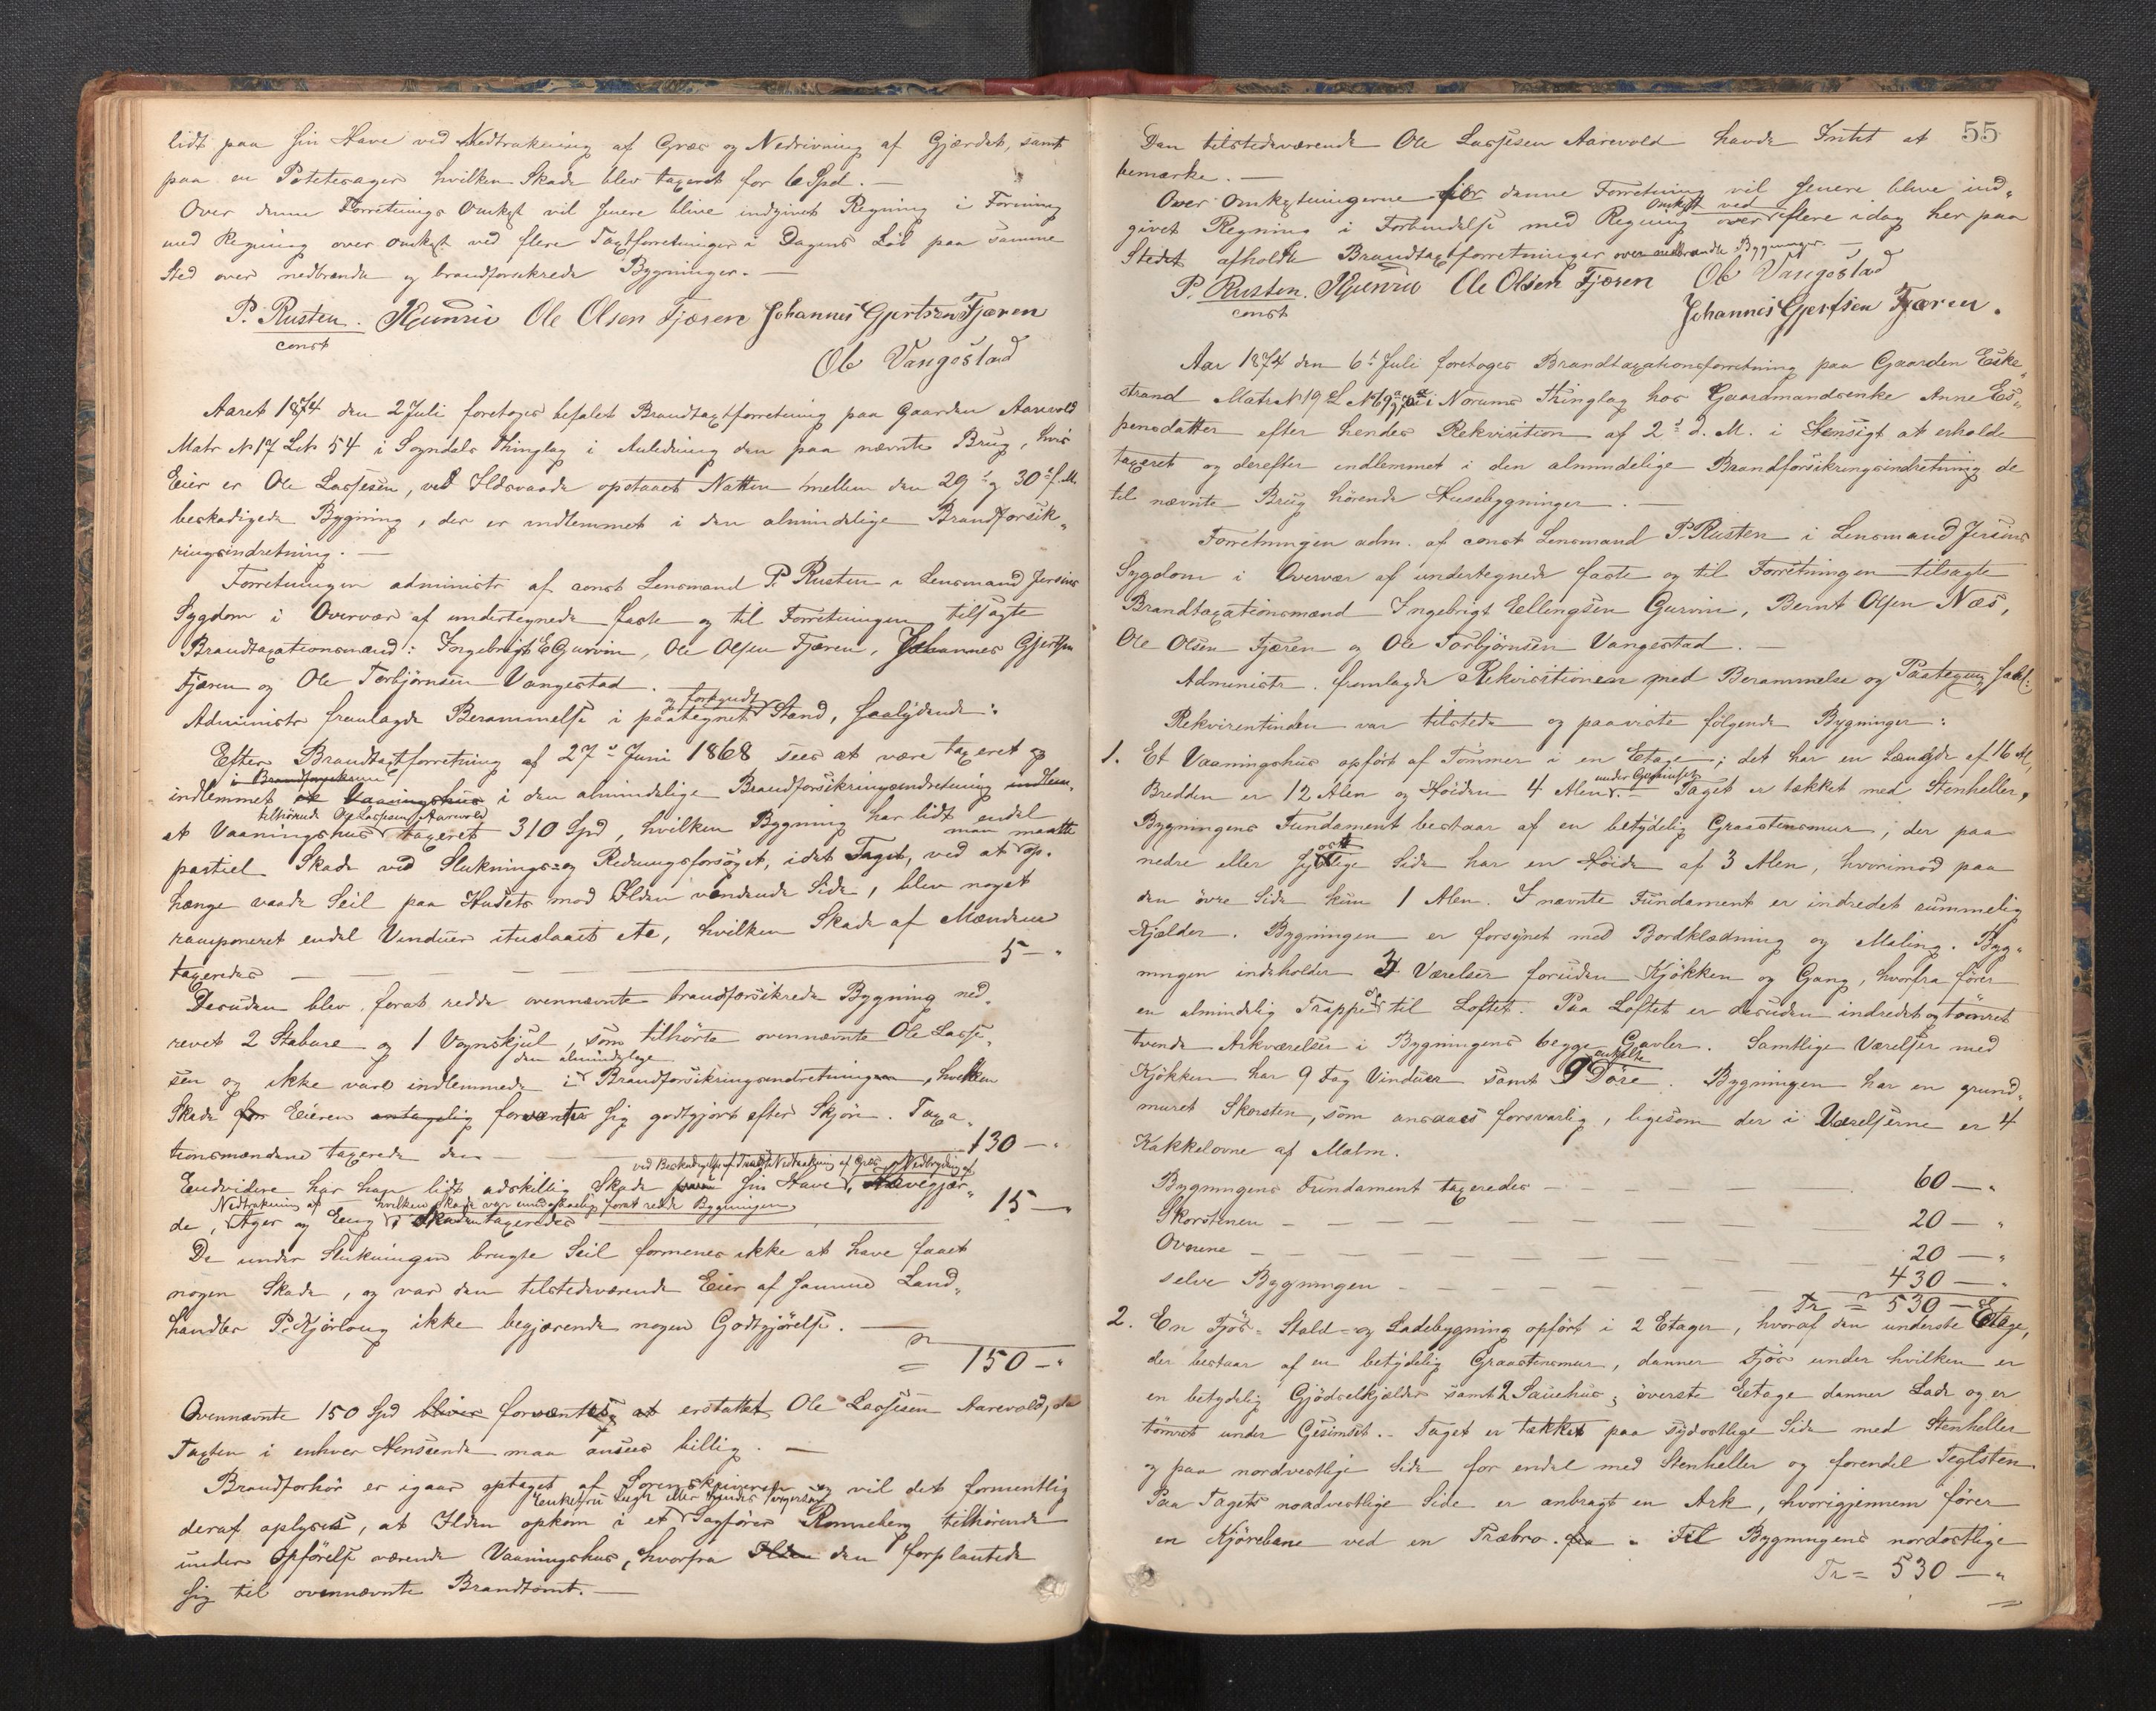 lidt paa sin Have ved Nedtrakning af Græs og Nedrivning af Gjærdet, samt
paa en Potetesager hvilken Skade blev taxeret for 6 Spd. —
Over denne Forretnings Omkost vil senere blive indgivet Regning i Forening
med Regning over Omkost ved flere Taxtforretninger i Dagens Löb paa samme
Sted over nedbrændte og brandforsikrede Bygninger. —
P. Rusten. Ole Olsen Fjæren Johannes Gjertsen Fjæren
const
Ole Vangestad
Aaret 1874 den 2 Juli foretoges befalet Brandtaxtforretning paa Gaarden Aarevold
Matr No 17 L No 54 i Sogndals Thinglag i Anledning den paa nævnte Brug, hvis
Eier er Ole Lassesen, ved Ildsvaade opstaaet Natten mellem den 29de og 30te f. M.
beskadigede Bygning, der er indlemmet i den almindelige Brandforsik-
ringsindretning. —
Forretningen administr af const Lensmand P Rusten i Lensmand Jersins
Sygdom i Overvær af undertegnede faste og til Forretningen tilsagte
Brandtaxationsmænd: Ingebrigt E Gurvin, Ole Olsen Fjæren, Johannes Gjertsen
Fjæren og Ole Torbjörnsen Vangestad.
og forkyndt
Administr fremlagde Berammelse i paategnet Stand, saalydende:
Efter Brandtaxtforretning af 27de Juni 1868 sees at være taxeret og
i Brandforsikrings
indlemmet et Vaaningshus i den almindelige Brandforsikringsindretning indlem-
tilhörende Ole Lassesen Aarevold
et Vaaningshus taxeret 310 Spd, hvilken Bygning har lidt endel
man maatte
partiel Skade ved Sluknings- og Redningsforsöget, idet Taget, ved at op-
hænge vaade Seil paa Husets mod Ilden vendende Side, blev noget
ramponeret endel Vinduer ituslaaet etc, hvilken Skade af Mændene
taxeredes — — — 5 — "
Desuden blev forat redde ovennævnte brandforsikrede Bygning ned-
revet 2 Stabure og 1 Vognskjul, som tilhörte ovennævnte Ole Lasse-
den almindelige
sen og ikke vare indlemmede i Brandforsikringsindretningen, hvilken
Skade for Eieren antagelig forventes sig godtgjort efter Skjön. Taxa-
tionsmændene taxerede den — 130 — "
ved Beskadigelse af Træer Nedtrakning af Græs og Nedbryding af
Endvidere har han lidt adskillig Skade paa sin Have, Havegjær-
Nedtrakning af hvilken Skade var uundgaaelig forat redde Bygningen
de, Ager og Eng Skaden taxeredes — 15 — "
De under Slukningen brugte Seil formenes ikke at have faaet
nogen Skade, og var den tilstedeværende Eier af samme Land-
handler P. Kjörlaug ikke begjærende nogen Godtgjörelse. —
= 150 — "
Ovennævnte 150 Spd bliver forventes at erstattet Ole Lassesen Aarevold, da
Taxten i enhver Henseende maa ansees billig. —
Brandforhör er igaar optaget af Sorenskriveren og vil det formentlig
Enkefru
deraf oplyses, at Ilden opkom i et Sagförer Ronneberg tilhörende
under Opförelse værende Vaaningshus, hvorfra Ilden den forplantede
sig til ovennævnte Brandtomt. —
55
Den tilstedeværende Ole Lassesen Aarevold havde Intet at
bemærke. —
Over Omkostningerne for denne Forretning vil senere blive ind-
Omkost ved
givet Regning i Forbindelse med Regning over flere idag her paa
Stedet afholdte Brandtaxtforretninger over nedbrændte Bygninger. —
P. Rusten. Ole Olsen Fjæren Ole Vangestad
const
Johannes Gjertsen Fjæren.
Aar 1874 den 6te Juli foretoges Brandtaxationsforretning paa Gaarden Eske-
strand Matr No 19 L No 69 i Norums Thinglag hos Gaardmandsenke Anne Es-
pensdatter efter hendes Rekvisition af 2den d. M. i Hensigt at erholde
taxeret og derefter indlemmet i den almindelige Brandforsikringsindretning de
til nævnte Brug hörende Husebygninger. —
Forretningen adm. af const Lensmand P. Rusten i Lensmand Jersins
Sygdom i Overvær af undertegnede faste og til Forretningen tilsagte
Brandtaxationsmænd Ingebrigt Ellingsen Gurvin, Bernt Olsen Næs,
Ole Olsen Fjæren og Ole Torbjörnsen Vangestad. —
Administr. fremlagde Rekvisitionen med Berammelse og Paategning saal:
Rekvirentinden var tilstede og paaviste fölgende Bygninger:
1. Et Vaaningshus opfört af Tömmer i en Etage; det har en Længde af 16 Al,
under Gesimset
Bredden er 12 Alen og Höiden 4 Alen. — Taget er tækket med Stenheller,
Bygningens Fundament bestaar af en betydelig Graastensmur, der paa
ost
nedre eller sydlige Side har en Höide af 3 Alen, hvorimod paa
den övre Side kun 1 Alen. I nævnte Fundament er indredet rummelig
Kjælder. Bygningen er forsynet med Bordklædning og Maling. Byg-
ningen indeholder 3 Værelser foruden Kjökken og Gang, hvorfra förer
en almindelig Trappe op til Loftet. Paa Loftet er desuden indredet og tömret
tvende Arkværelser i Bygningens begge Gavler. Samtlige Værelser med
enkelte
Kjökken har 9 Fag Vinduer samt 9 Döre. Bygningen har en grund-
muret Skorsten, som ansaaes forsvarlig, ligesom der i Værelserne er 4
Kakkelovne af Malm.
Bygningens Fundament taxeredes — 60 — "
Skorstenen — — — 20 — "
Ovnene — — — 20 — "
selve Bygningen — — — 430 — "
Tr = 530 — "
2. En Fjös- Stald- og Ladebygning opfört i 2 Etager, hvoraf den underste Etage,
der bestaar af en betydelig Graastensmur, danner Fjös under hvilken er
en betydelig Gjödselkjælder samt 2 Sauehus; överste Etage danner Lade og er
tömret under Gesimset. — Taget er tækket paa sydostlige Side med Stenheller
og paa nordvestlige Side for endel med Stenheller og forendel Teglsten
Paa Tagets nordvestlige Side er anbragt en Ark, hvorigjennem förer
en Kjörebane ved en Træbro. fra . Til Bygningens nordostlige
Tr = 530 — "